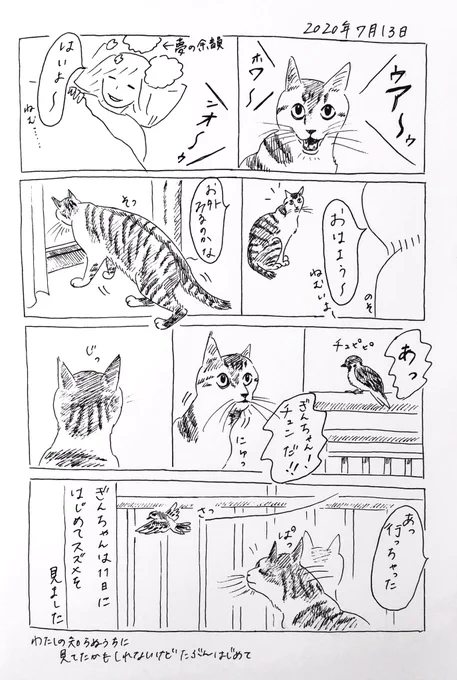 2020年7月13日
ウア〜ゥ
ホワ〜
ニオ〜ゥ
←夢の余韻
はいよ〜
ねむ…
おはよう〜
ねむいよ
のそ
お外
みるのかな
そっ
あっ
チュピピ
ぎんちゃん!
チュンだ!!
にゅっ
じっ
あっ
行っちゃった
さっ
ぱっ
ぎんちゃんは11日に
はじめてスズメを
見ました
わたしの知らぬうちに
見てたかもしれないけどたぶんはじめて